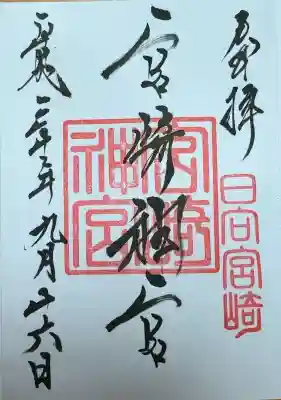 奉拝
日向宮崎
宮崎神宮
宮崎神宮
平成 年九月廿六日